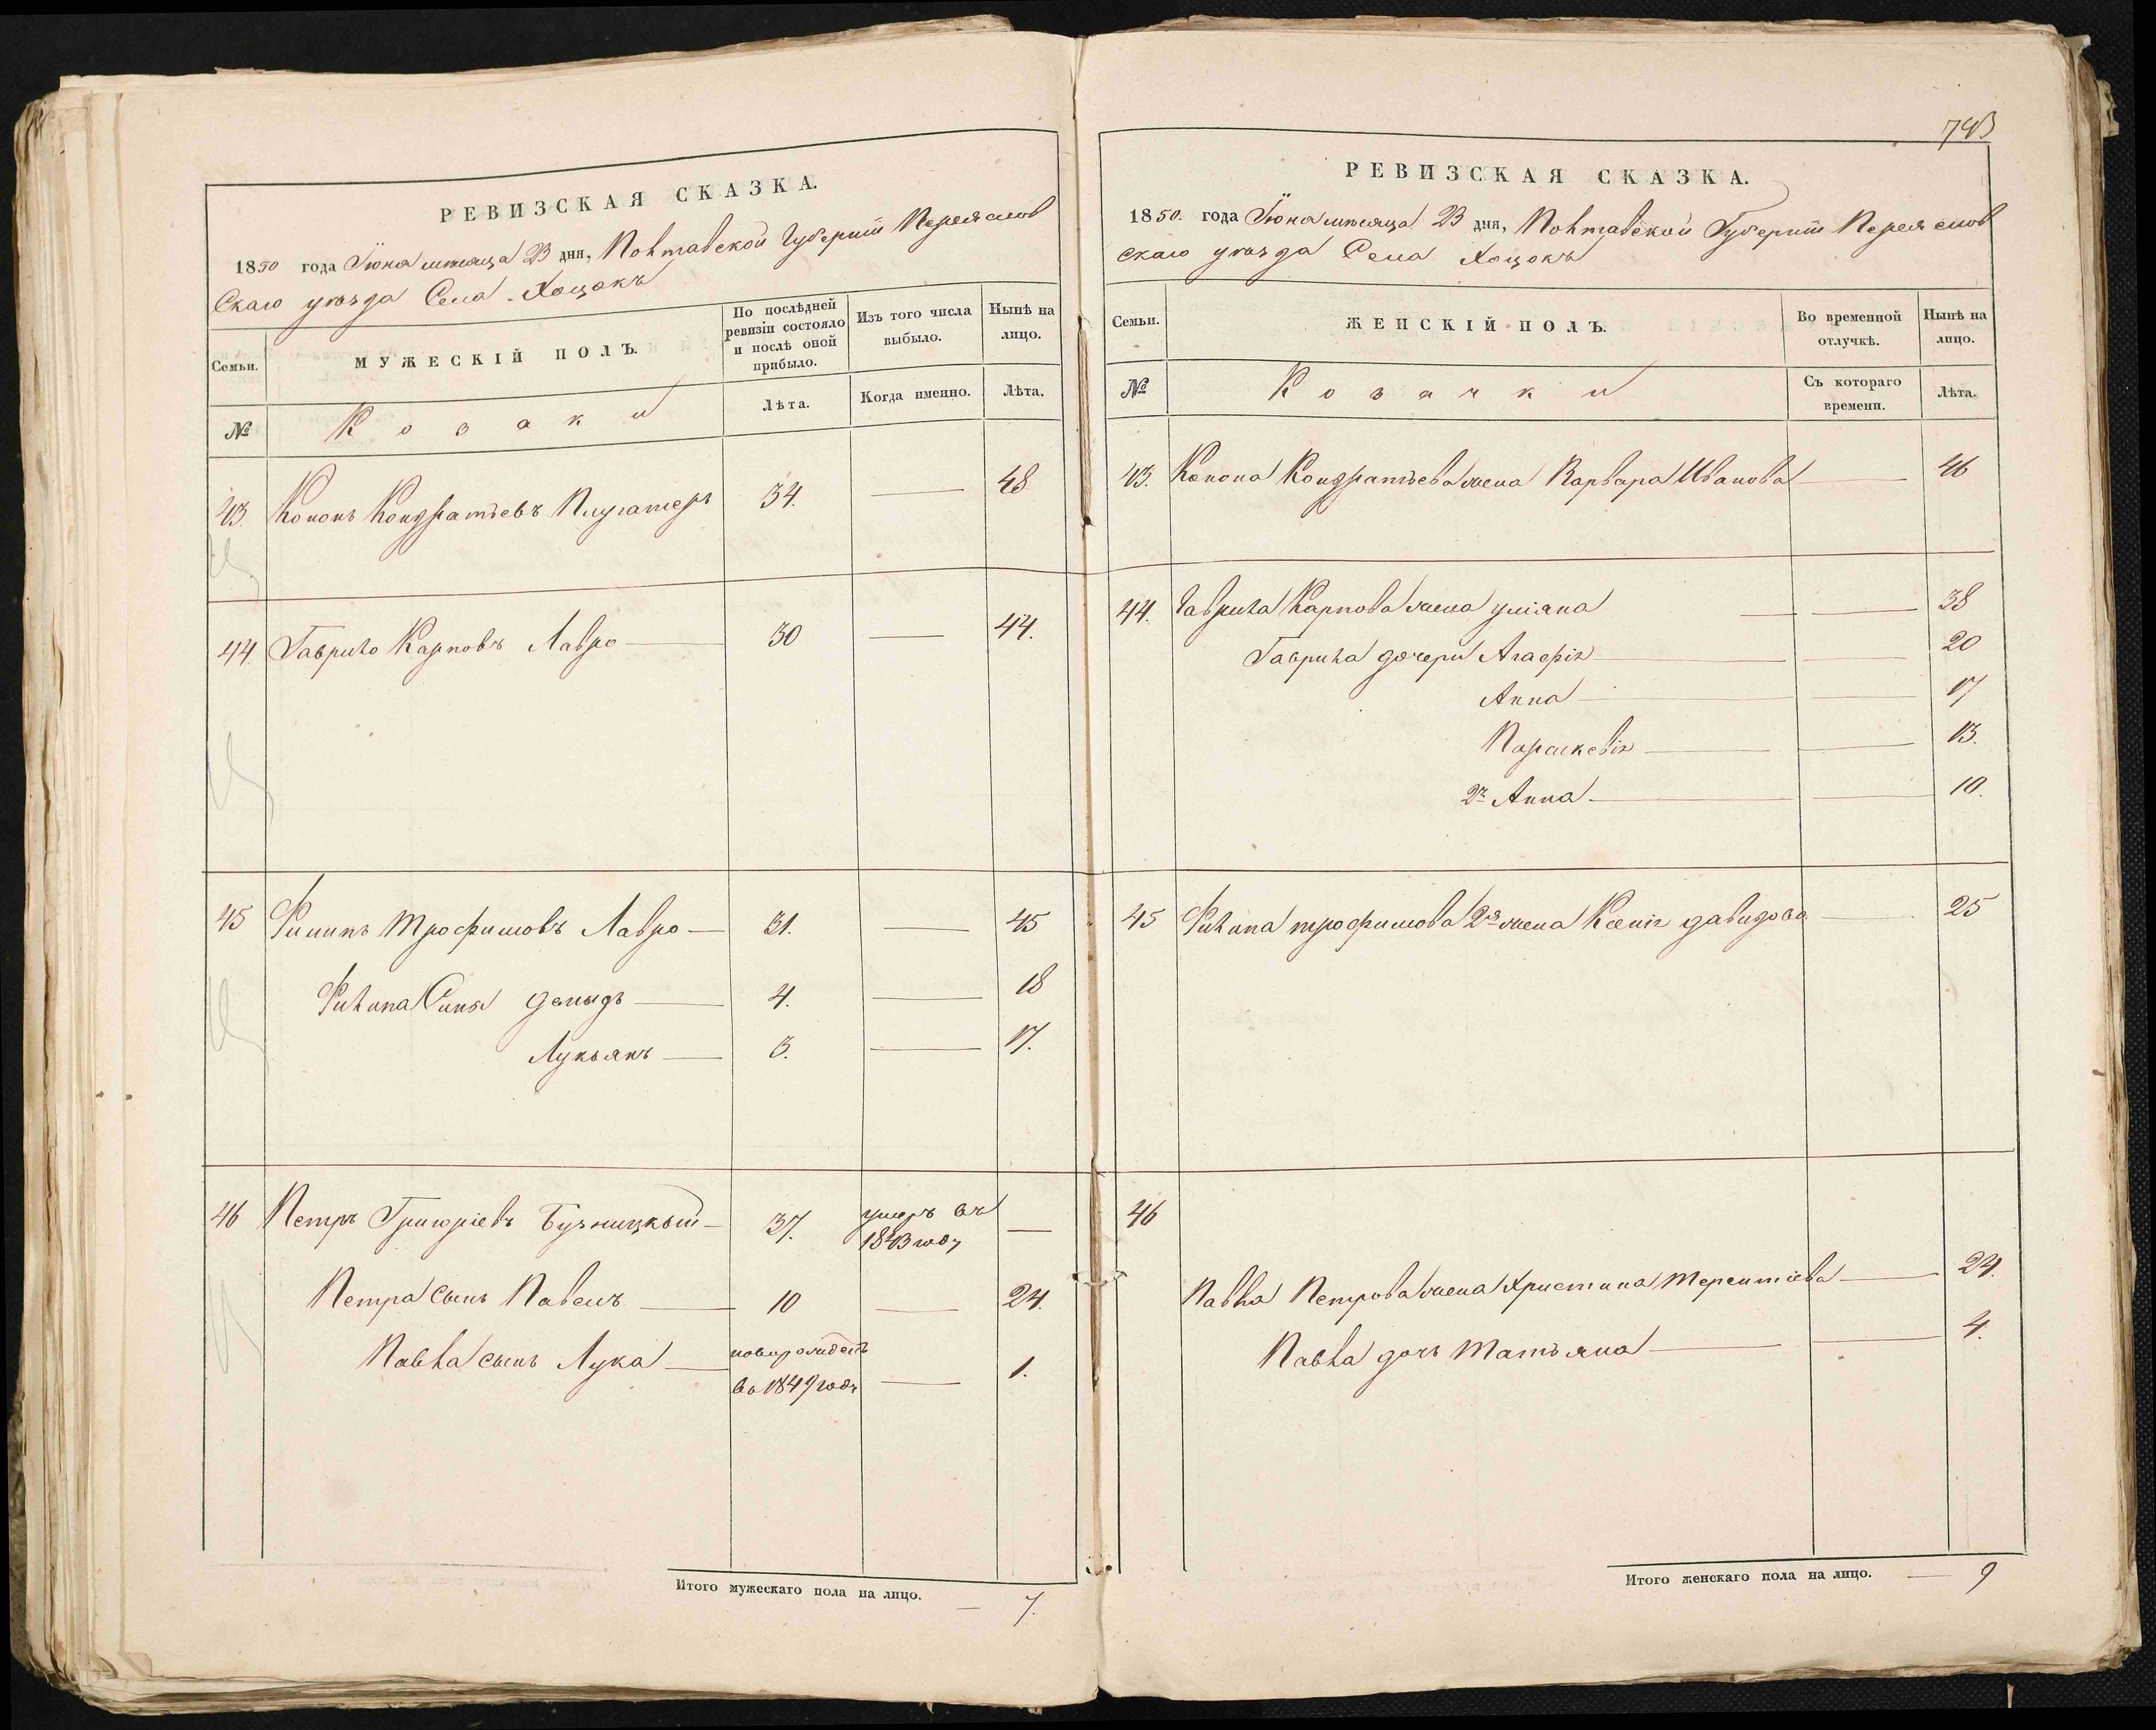 РЕВИЗСКАЯ СКАЗКА.
1850 года Іюня мѣсяца 23 дня, Полтавской Губерніи Переяслов
скаго уѣзда Села Хоцокъ
Семьи.
МУЖЕСКІЙ ПОЛЪ.
По послѣдней ревизіи состояло и послѣ оной прибыло.
Изъ того числа выбыло.
Нынѣ на лицо.
№
Козаки
Лѣта.
Когда именно.
Лѣта.
43. Кононъ Кондратьевъ 34. — 48
44. Гаврило Карповъ Лавро — 30 — 44.
45 Филипъ Трофимовъ Лавро — 31. — 45
Филипа Сыны Демыдъ — 4. — 18
Лукьянъ — 3. — 17.
46 Петръ Григоріевъ — 37. умеръ въ 1843 году —
Петра сынъ Павелъ — 10 — 24.
Павла сынъ Лука — новорожденъ въ 1849 году — 1.
Итого мужескаго пола на лицо. — 7.
743
РЕВИЗСКАЯ СКАЗКА.
1850. года Іюня мѣсяца 23 дня, Полтавской Губерніи Переяслов
скаго уѣзда Села Хоцокъ
Семьи.
ЖЕНСКІЙ ПОЛЪ.
Во временной отлучкѣ.
Нынѣ на лицо.
№
Козачки
Съ котораго времени.
Лѣта.
43. Конона Кондратьева жена Варвара Иванова — 46
44. Гаврила Карпова жена Уліана — — 38
Гаврила дочери Агафія — — 20
Анна — — 17
Параскевія — — 13.
2я Анна — — 10.
45 Филипа Трофимова 2я жена Ксенія Давидова — 25
46
Павла Петрова жена Христина Терентіева — 24.
Павла дочь Татьяна — — 4.
Итого женскаго пола на лицо. — 9